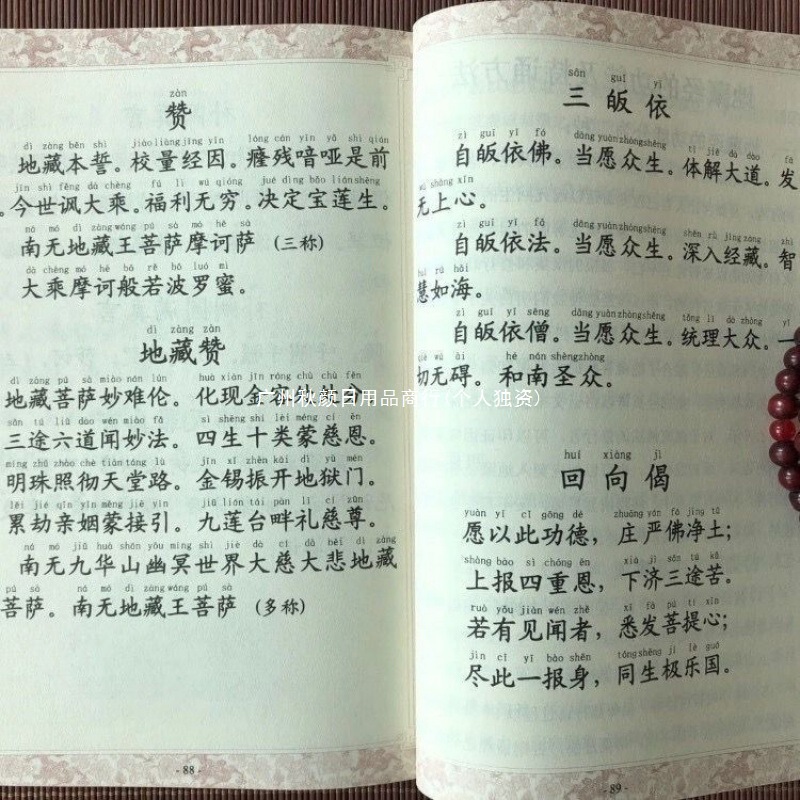 zàn
赞
dì zàng běn shì jiào liàng jīng yīn lóng cán yīn yǎ shì qián
地藏本誓。校量经因。癃残喑哑是前
jīn shì fěng dà chèng fú lì wú qióng jué dìng bǎo lián shēng
。今世讽大乘。福利无穷。决定宝莲生。
ná mó dì zàng wáng pú sà mó hē sà
南无地藏王菩萨摩诃萨 (三称)
dà chèng mó hē bō rě bō luó mì
大乘摩诃般若波罗蜜。
dì zàng zàn
地藏赞
dì zàng pú sà miào nán lún huà xiàn jīn róng chù chù fēn
地藏菩萨妙难伦。化现金容处处分
广州秋颜日用品商行(个人独资)
sān tú liù dào wén miào fǎ sì shēng shí lèi méng cí ēn
三途六道闻妙法。四生十类蒙慈恩。
míng zhū zhào chè tiān táng lù jīn xī zhèn kāi dì yù mén
明珠照彻天堂路。金锡振开地狱门。
lěi jié qīn yīn méng jiē yǐn jiǔ lián tái pàn lǐ cí zūn
累劫亲姻蒙接引。九莲台畔礼慈尊。
ná mó jiǔ huá shān yōu míng shì jiè dà cí dà bēi dì zàng
南无九华山幽冥世界大慈大悲地藏
pú sà ná mó dì zàng wáng pú sà
菩萨。南无地藏王菩萨 (多称)
- 88 -
sān guī yī
三皈依
zì guī yī fó dāng yuàn zhòng shēng tǐ jiě dà dào fā
自皈依佛。当愿众生。体解大道。发
wú shàng xīn
无上心。
zì guī yī fǎ dāng yuàn zhòng shēng shēn rù jīng zàng zhì
自皈依法。当愿众生。深入经藏。智
huì rú hǎi
慧如海。
zì guī yī sēng dāng yuàn zhòng shēng tǒng lǐ dà zhòng yī
自皈依僧。当愿众生。统理大众。一
qiè wú ài hé nán shèng zhòng
切无碍。和南圣众。
huí xiàng jì
回向偈
yuàn yǐ cǐ gōng dé zhuāng yán fó jìng tǔ
愿以此功德，庄严佛净土；
shàng bào sì chóng ēn xià jì sān tú kǔ
上报四重恩，下济三途苦。
ruò yǒu jiàn wén zhě xī fā pú tí xīn
若有见闻者，悉发菩提心；
jìn cǐ yī bào shēn tóng shēng jí lè guó
尽此一报身，同生极乐国。
- 89 -